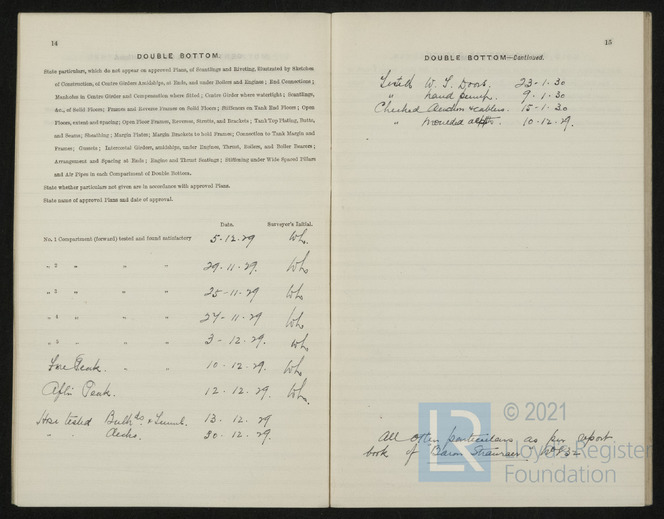 14
DOUBLE BOTTOM.
State particulars, which do not appear on approved Plans, of Scantlings and Riveting, illustrated by Sketches
of Construction, of Centre Girders Amidships, at Ends, and under Boilers and Engines; End Connections;
Manholes in Centre Girder and Compensation where fitted; Centre Girder where watertight; Scantlings,
&c., of Solid Floors; Frames and Reverse Frames on Solid Floors; Stiffeners on Tank End Floors; Open
Floors, extent and spacing; Open Floor Frames, Reverses, Struts, and Brackets; Tank Top Plating, Butts,
and Seams; Sheathing; Margin Plates; Margin Brackets to hold Frames; Connection to Tank Margin and
Frames; Gussets; Intercostal Girders, amidships, under Engines, Thrust, Boilers, and Boiler Bearers;
Arrangement and Spacing at Ends; Engine and Thrust Seatings; Stiffening under Wide Spaced Pillars
and Air Pipes in each Compartment of Double Bottom.
State whether particulars not given are in accordance with approved Plans.
State name of approved Plans and date of approval.
Date. Surveyor's Initial.
No. 1 Compartment (forward) tested and found satisfactory 5.12.29 Wh.
„ 2 „ „ „ 29.11.29. Wh.
„ 3 „ „ „ 25.11.29 Wh.
„ 4 „ „ „ 27.11.29 Wh.
„ 5 „ „ „ 3.12.29. Wh.
Fore Peak. „ „ 10.12.29. Wh.
After Peak. 12.12.29. Wh.
Hose tested Bulkhds & Tunnel. 13.12.29
„ „ Decks. 20.12.29.
15
DOUBLE BOTTOM—Continued.
Tested W. T. Doors. 23.1.30
„ hand pumps. 9.1.30
Checked Anchors & cables. 15.1.30
„ 10.12.29.
All other particulars as per report
book of Baron
© 2021
LR
Lloyd's Register
Foundation